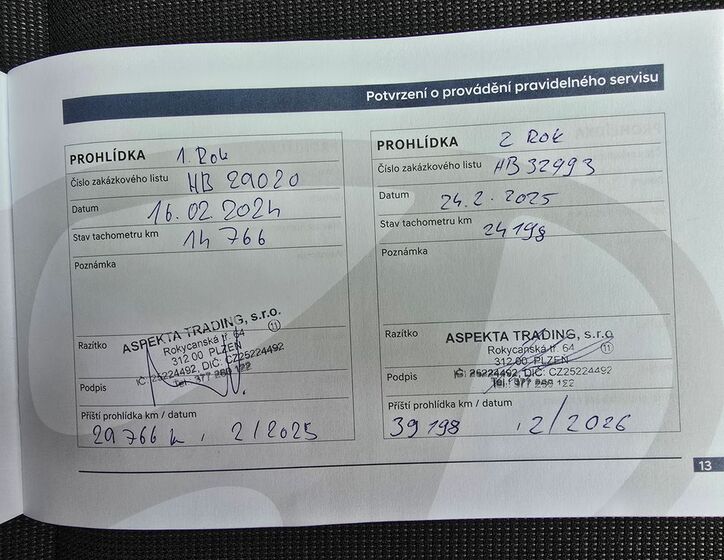 Potvrzení o provádění pravidelného servisu
PROHLÍDKA 1. Rok
Číslo zakázkového listu HB 29020
Datum 16.02.2024
Stav tachometru km 14 766
Poznámka
Razítko
ASPEKTA TRADING, s.r.o.
Rokycanská tř. 64 11
312 00 PLZEŇ
IČ: 25224492, DIČ: CZ25224492
Tel.: 377 260 122
Podpis
Příští prohlídka km / datum
29 766 k, 2/2025
PROHLÍDKA 2 Rok
Číslo zakázkového listu HB32993
Datum 24.2.2025
Stav tachometru km 24198
Poznámka
Razítko
ASPEKTA TRADING, s.r.o.
Rokycanská tř. 64 11
312 00 PLZEŇ
IČ: 25224492, DIČ: CZ25224492
Podpis
Příští prohlídka km / datum
39 198 , 2/2026
13